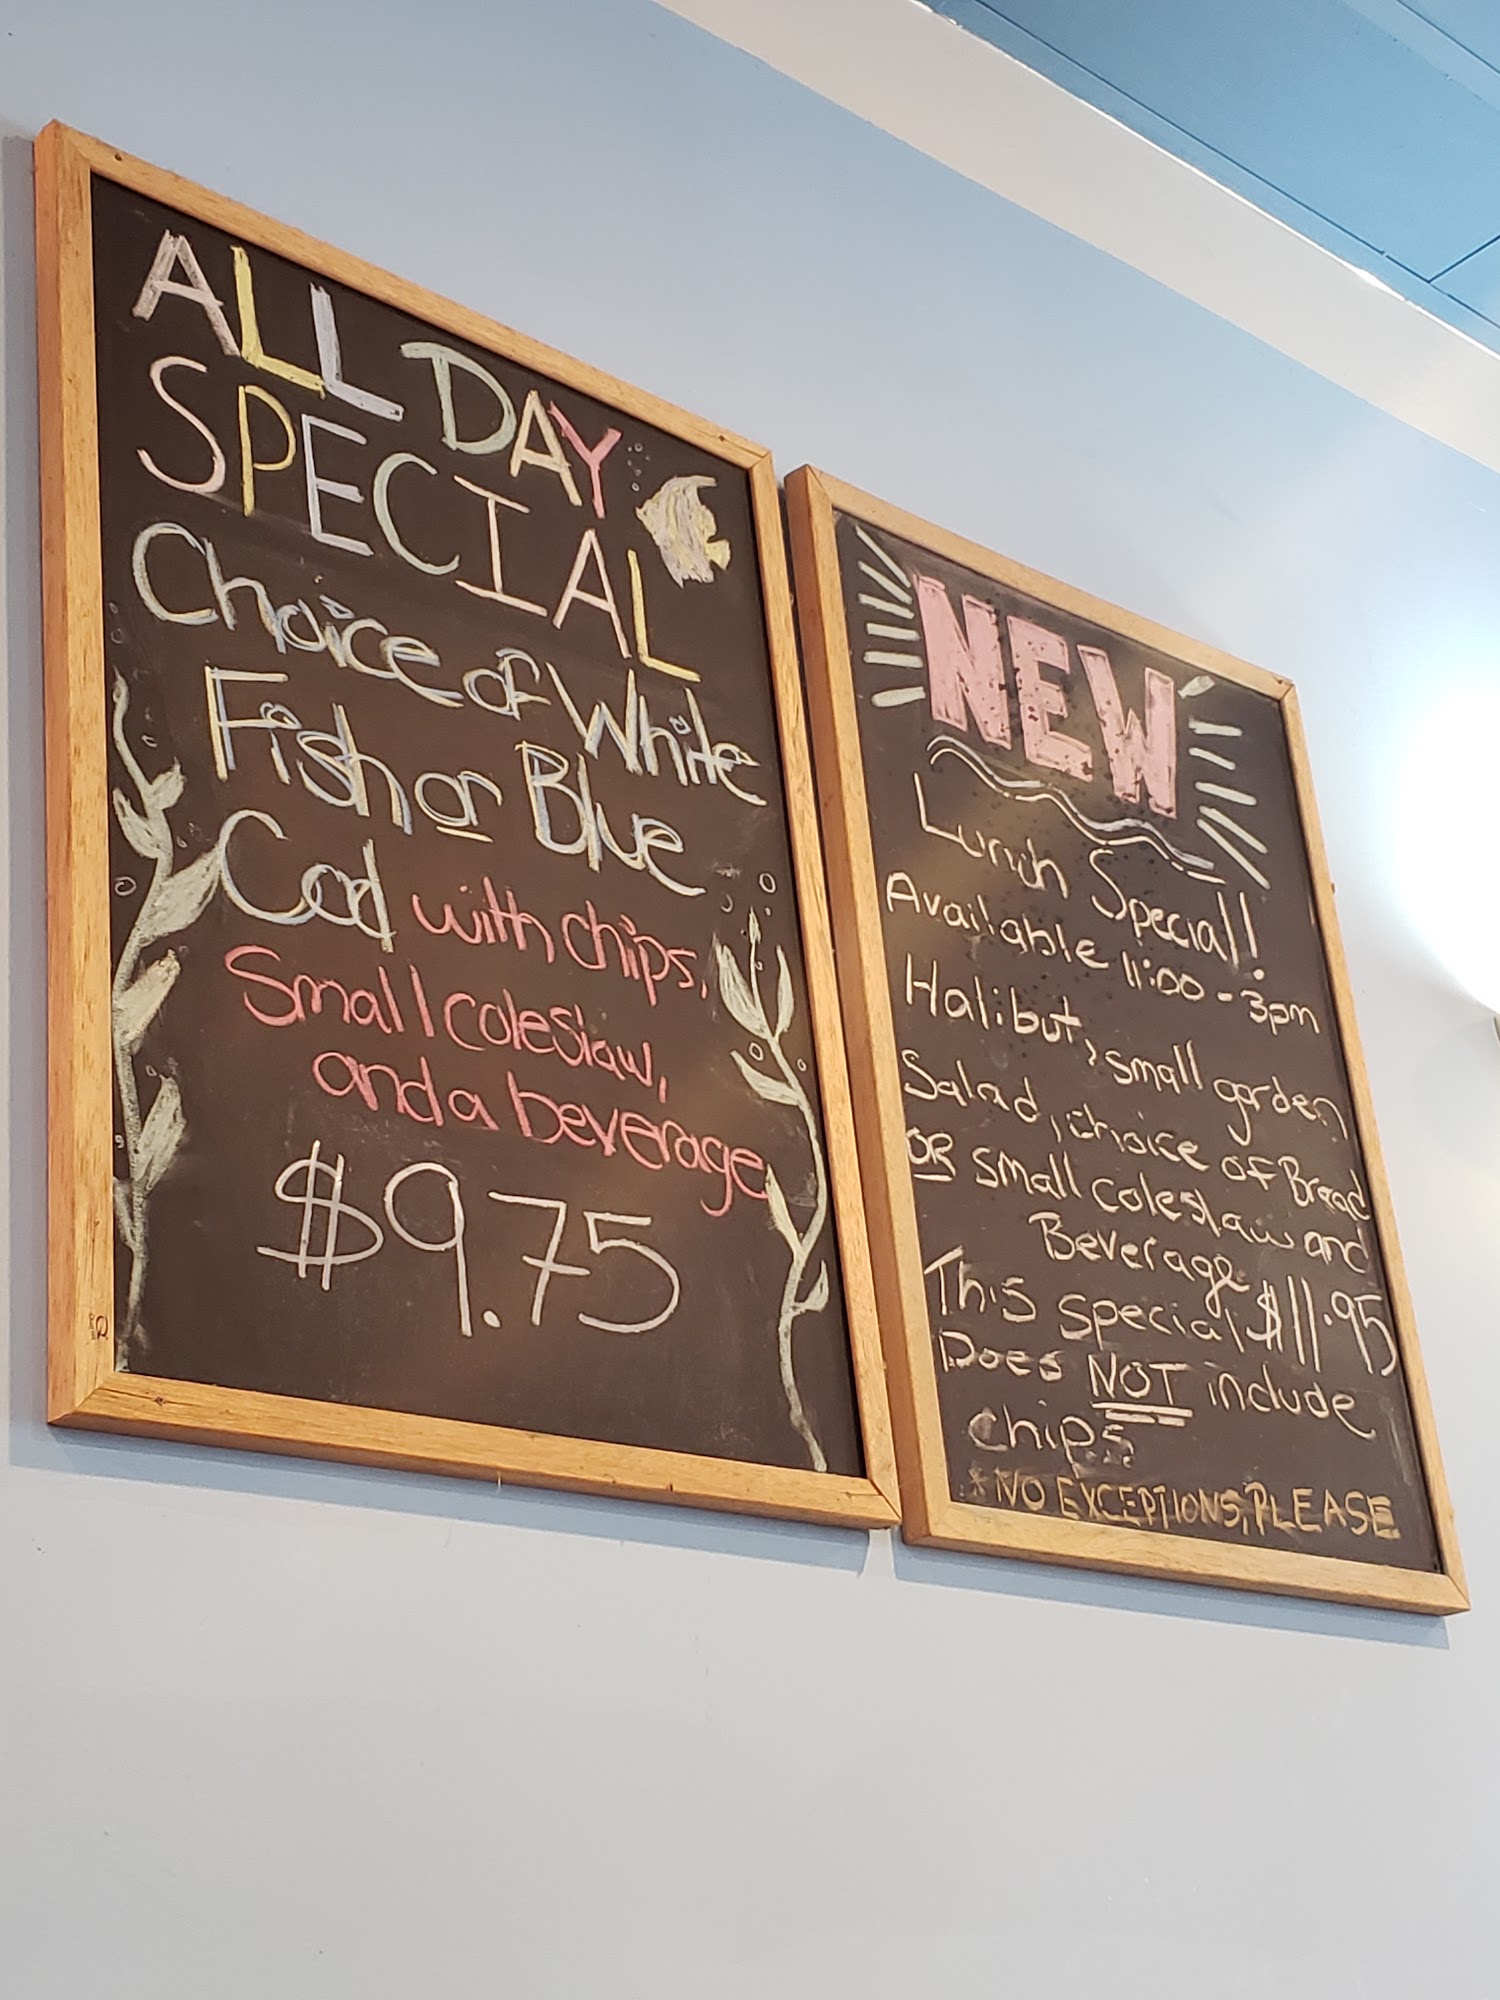 ALL DAY
SPECIAL
Choice of White
Fish or Blue
Cod with chips,
Small coleslaw,
and a beverage
$9.75
NEW
Lunch Special!
Available 11:00 - 3pm
Halibut, small garden
Salad, choice of Bread
OR small coleslaw and
Beverage $11.95
This special
Does NOT include
chips
*NO EXCEPTIONS, PLEASE